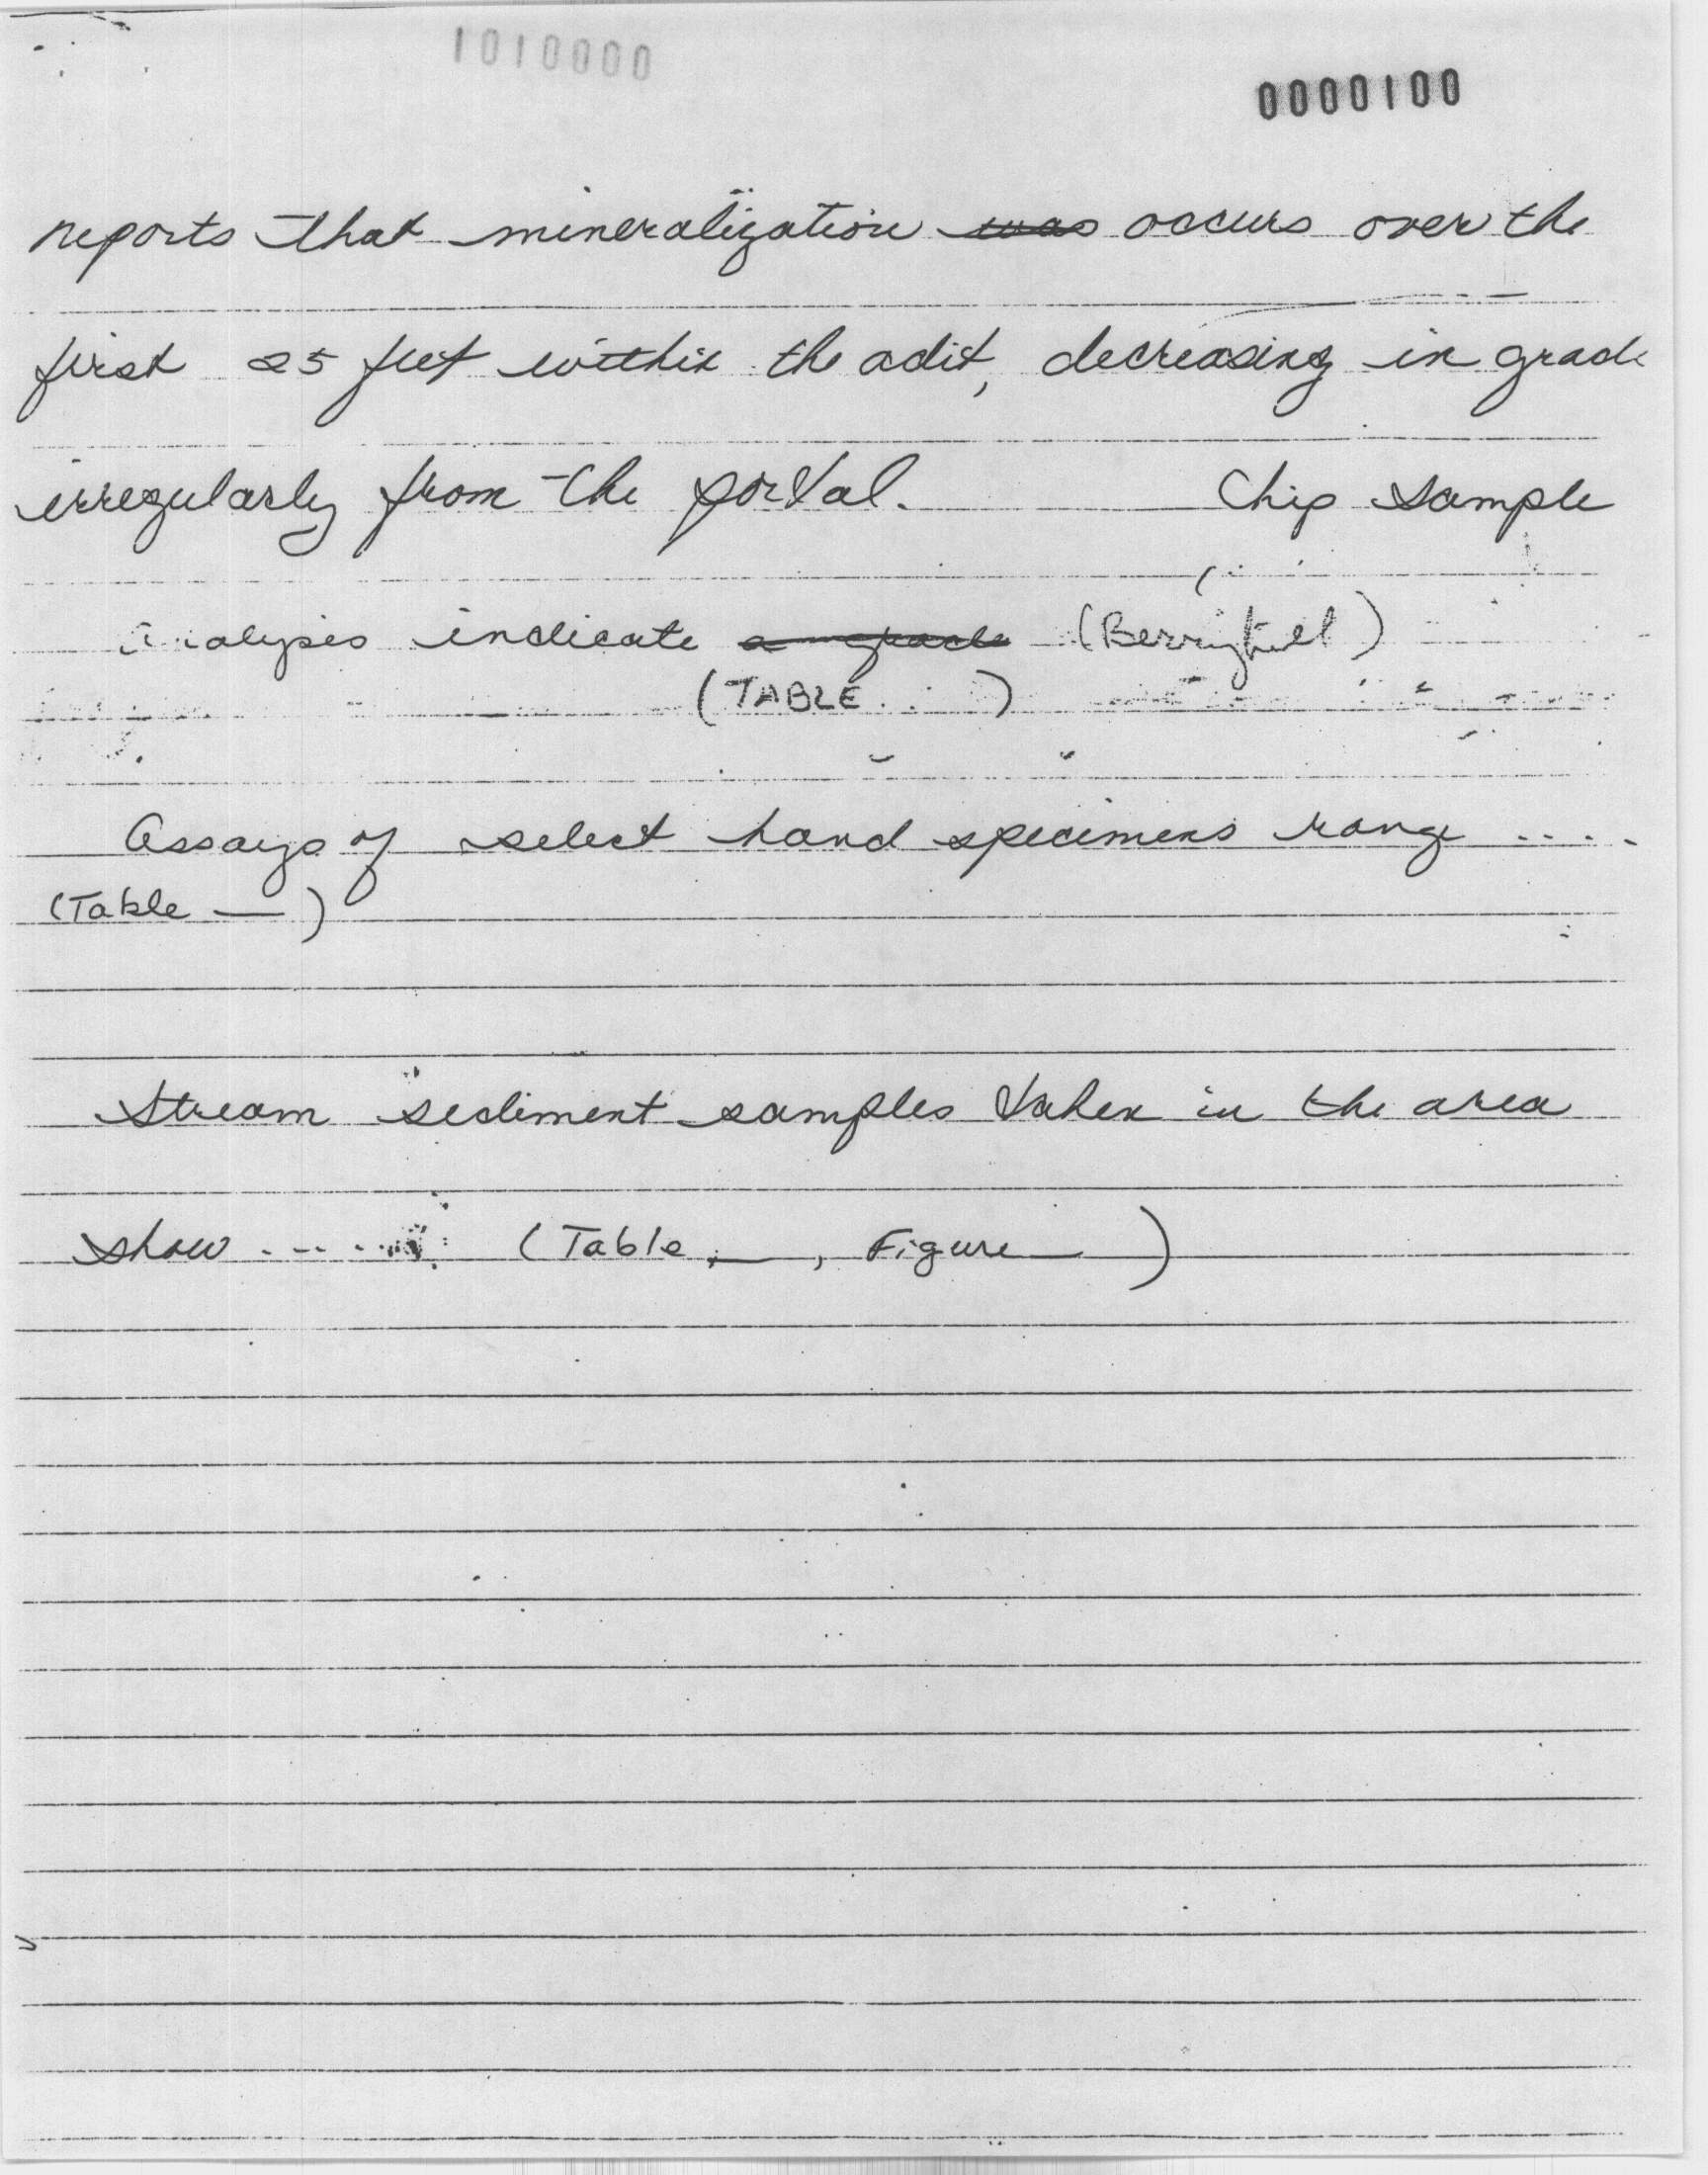 1010000
0000100
reports that mineralization was occurs over the
first 25 feet within the adit, decreasing in grade
irregularly from the portal. Chip sample
analyses indicate a grade (Berryhill)
(TABLE )
Assays of select hand specimens range ....
(Table — )
Stream sediment samples taken in the area
show ..... (Table — , Figure — )